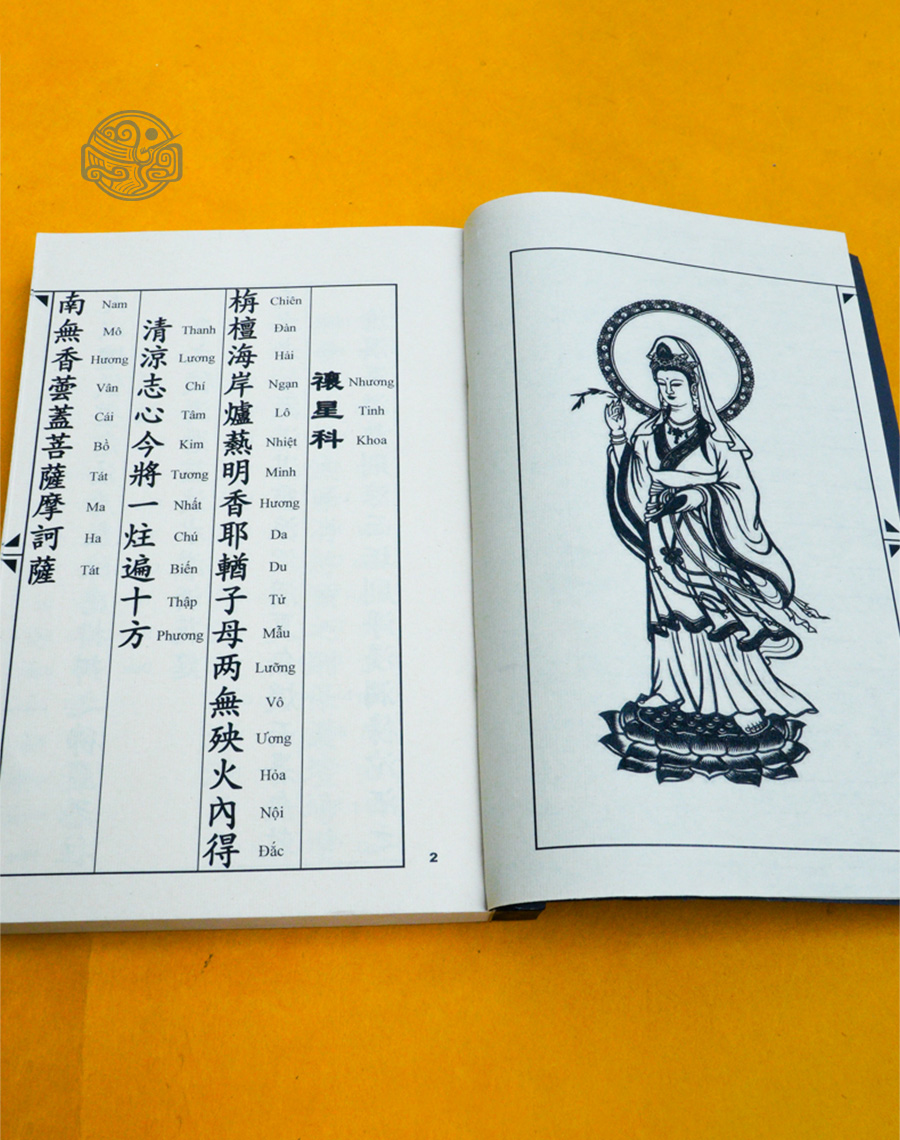 禳星科
Nhương Tinh Khoa
栴檀海岸爐爇明香耶輶子母两無殃火內得
Chiên Đàn Hải Ngạn Lô Nhiệt Minh Hương Da Du Tử Mẫu Lưỡng Vô Ương Hỏa Nội Đắc
清涼志心今將一炷遍十方
Thanh Lương Chí Tâm Kim Tương Nhất Chú Biến Thập Phương
南無香蕓蓋菩薩摩訶薩
Nam Mô Hương Vân Cái Bồ Tát Ma Ha Tát
2